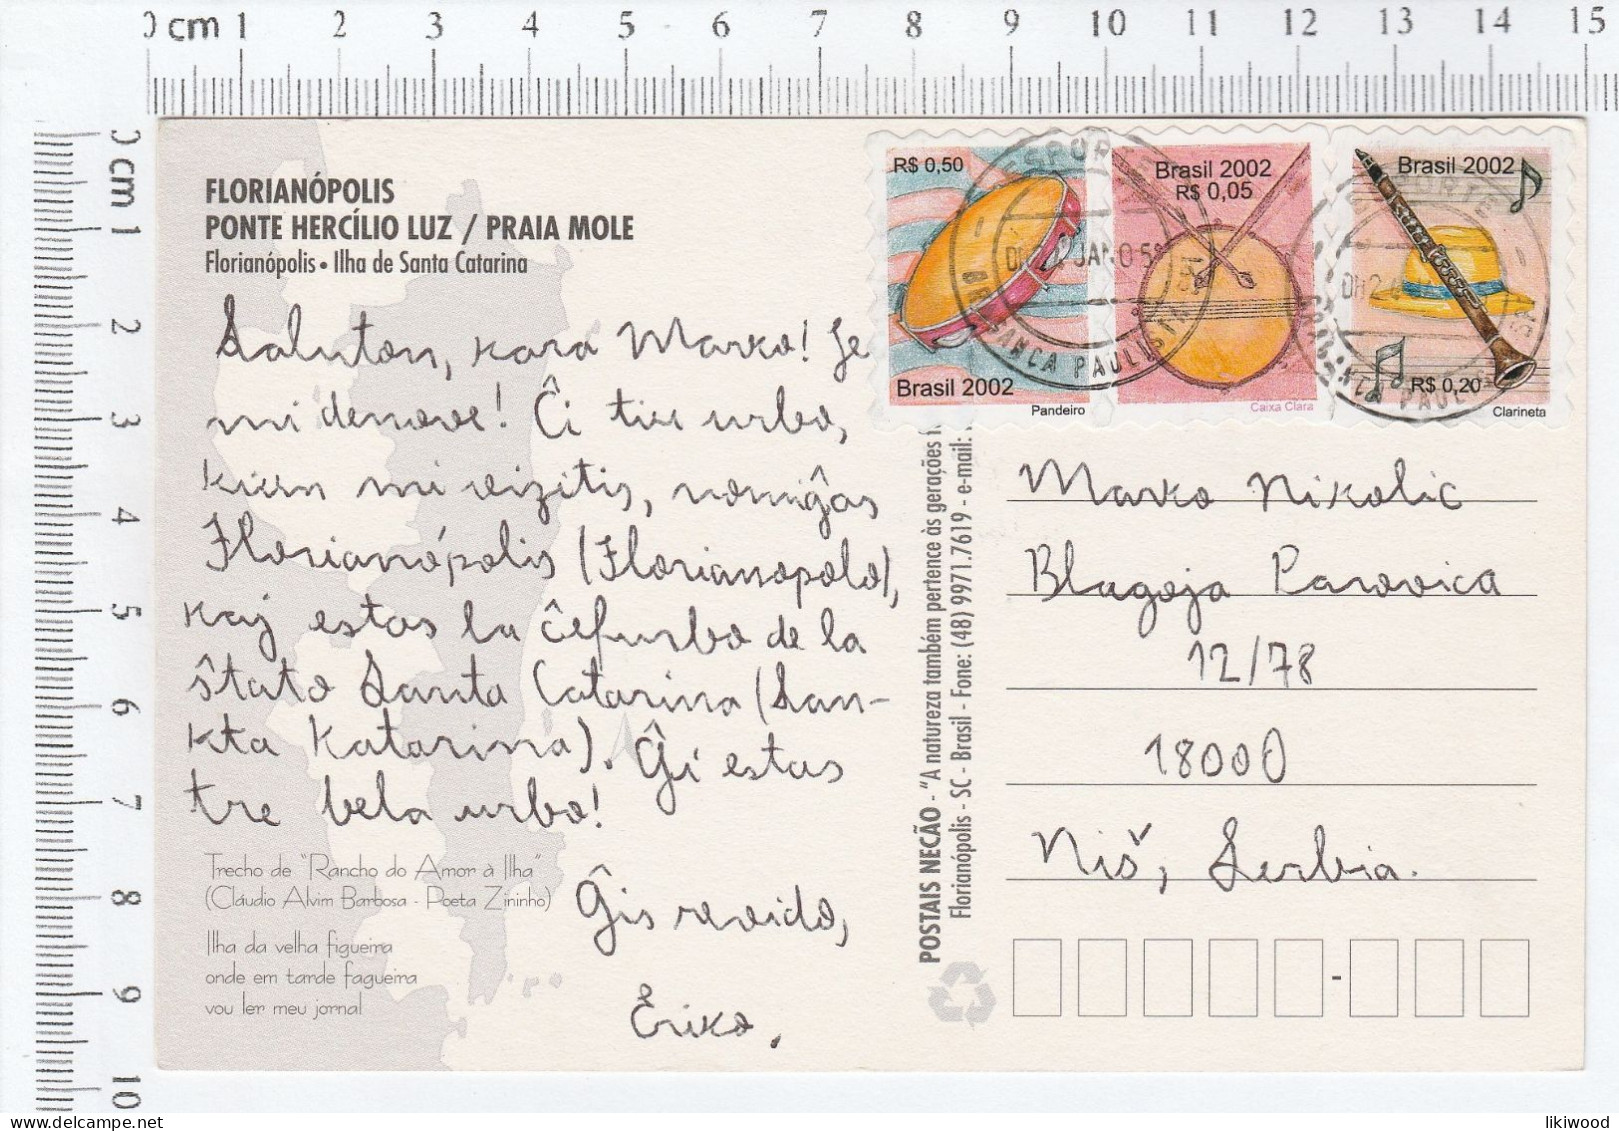 0 cm 1 2 3 4 5 6 7 8 9 10 11 12 13 14 15
0 cm 1 2 3 4 5 6 7 8 9 10
FLORIANÓPOLIS
PONTE HERCÍLIO LUZ / PRAIA MOLE
Florianópolis • Ilha de Santa Catarina
Saluton, kara Marko! Je
mi denove! Ĉi tiu urbo,
kiun mi vizitis, nomiĝas
Florianópolis (Florianopolo),
kaj estas la ĉefurbo de la
ŝtato Santa Catarina (San-
kta Katarina). Ĝi estas
tre bela urbo!
Ĝis revido,
Eriko.
Trecho de "Rancho do Amor à Ilha"
(Cláudio Alvim Barbosa - Poeta Zininho)
Ilha da velha figueira
onde em tarde fagueira
vou ler meu jornal
POSTAIS NECÃO - "A natureza também pertence às gerações
Florianópolis - SC - Brasil - Fone: (48) 9971.7619 - e-mail:
R$ 0,50
Brasil 2002
Pandeiro
Brasil 2002
R$ 0,05
Caixa Clara
Brasil 2002
R$ 0,20
Clarineta
JAN 05
BRAGANÇA PAULISTA
Marko Nikolic
Blagoja Parovica
12/78
18000
Niš, Serbia.
-
likiwood